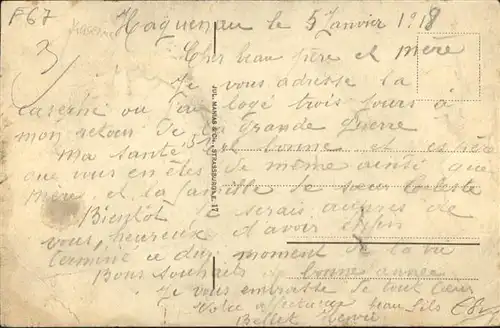 F67
Haguenau le 5 Janvier 1918
Cher beau père et mère
Je vous adresse la
caserne ou j'ai logé trois jours à
mon retour de la grande guerre
Ma santé est bonne et espère
que vous en êtes de même ainsi que
mère et la famille le soeur Celeste
Bientôt je serais auprès de
vous, heureux d'avoir enfin
terminé ce dur moment de la vie
Bons souhaits bonne année
Je vous embrasse de tout coeur
Votre affectueux beau fils
JUL. MANIAS & CIE., STRASSBURG I. E. 17